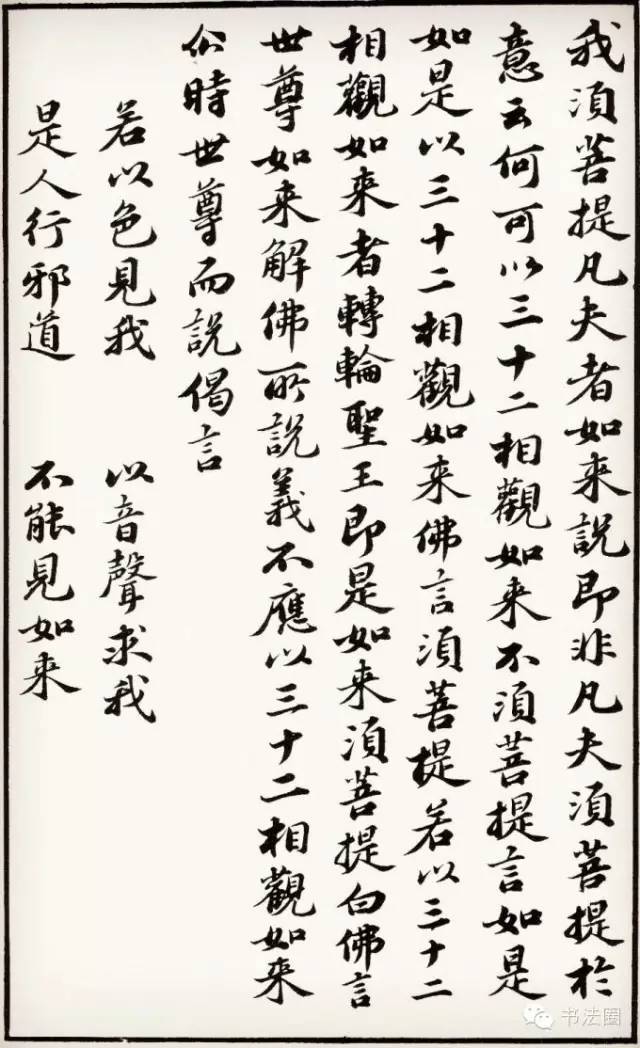 我須菩提凡夫者如来說即非凡夫須菩提於
意云何可以三十二相觀如来不須菩提言如是
如是以三十二相觀如来佛言須菩提若以三十二
相觀如来者轉輪聖王即是如来須菩提白佛言
世尊如来解佛所說義不應以三十二相觀如来
尒時世尊而說偈言
若以色見我 以音聲求我
是人行邪道 不能見如来
书法圈